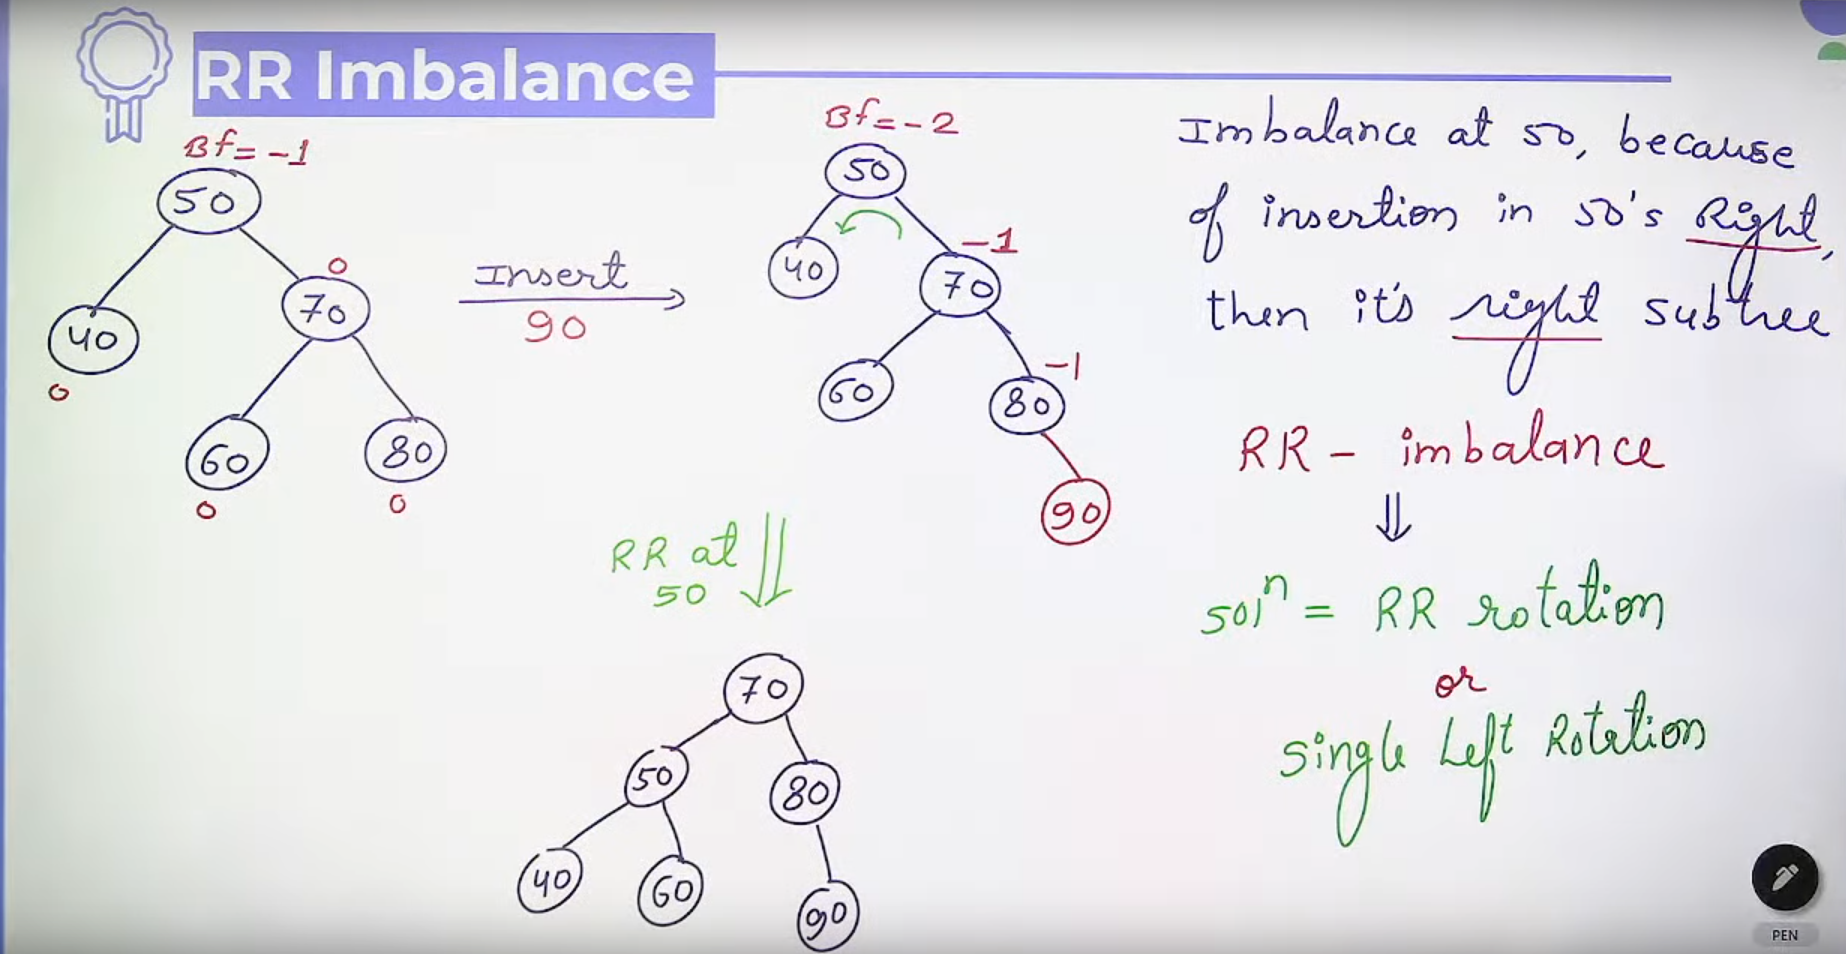 RR Imbalance
Bf=-1
50
0
70
40
0
60
0
80
0
Insert
90
Bf=-2
50
40
-1
70
60
-1
80
90
RR at
50
70
50
80
40
60
90
Imbalance at 50, because
of insertion in 50's Right,
then it's right subtree
RR - imbalance
⇓
solⁿ = RR rotation
or
Single Left Rotation
PEN